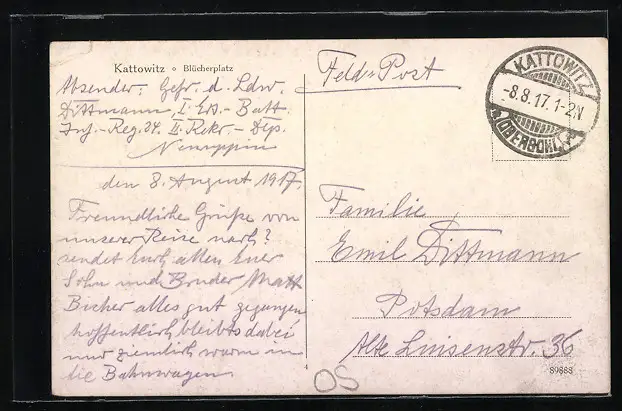 Kattowitz • Blücherplatz
Feld-Post
Absender: Gefr. d. Ldw.
Dittmann, I. Ers.-Batt.
Inf.-Reg. 24. II. Rekr.-Dep.
Neuruppin
KATTOWITZ
-8.8.17. 1-2N
(OBERSCHL.)
den 8. August 1917.
Freundliche Grüße von
unserer Reise nach?
sendet Euch allen Euer
Sohn und Bruder
Bisher alles gut gegangen
hoffentlich bleibts dabei
nur ziemlich warm in
die Bahnwagen
Familie
Emil Dittmann
Potsdam
Alte Luisenstr. 36
89888
OS